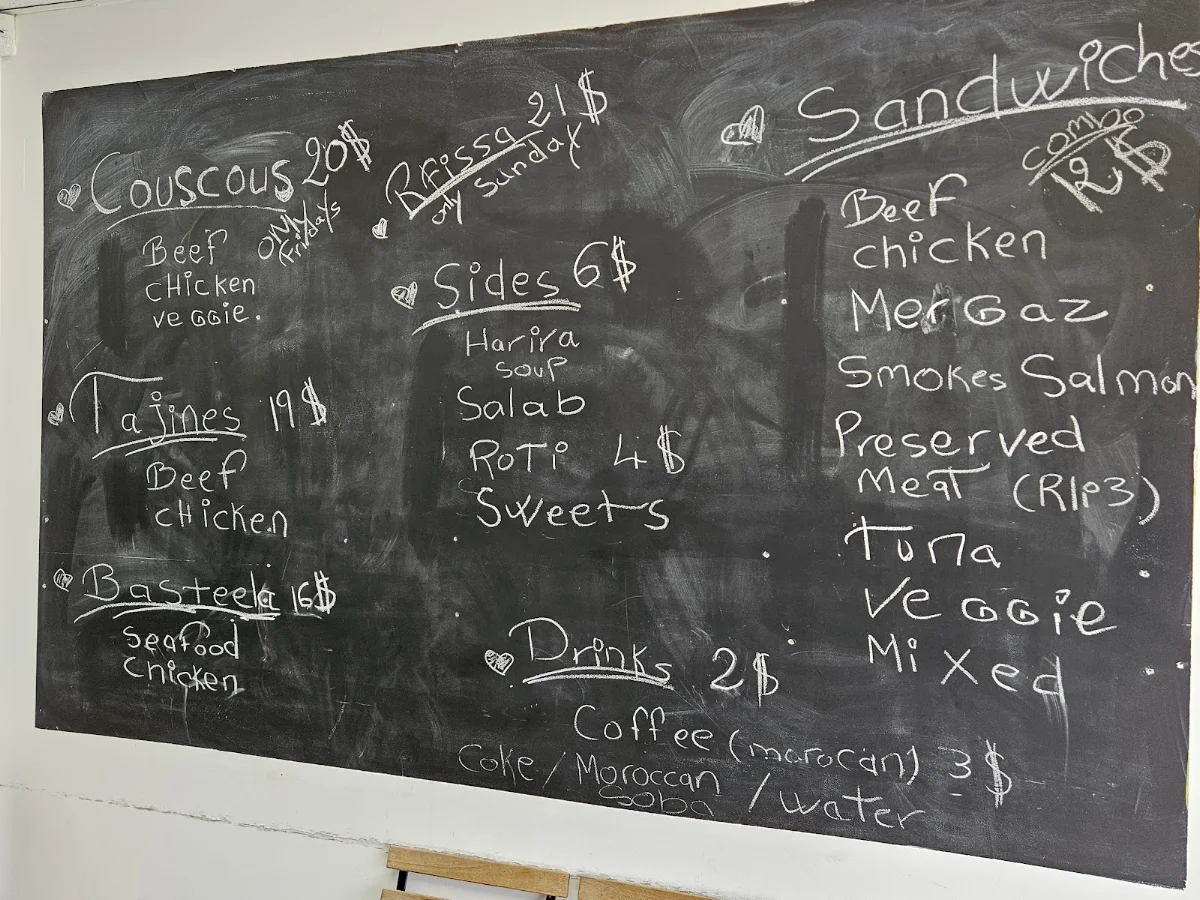 Couscous 20$
only
Fridays
Beef
cHicken
veggie.
Tajines 19$
Beef
cHicken
Basteela 16$
Seafood
Chicken
Rfissa 21$
only Sunday
Sides 6$
Harira
soup
Salab
RoTi 4$
Sweets
Drinks 2$
Coffee (marocan) 3$
Coke / Moroccan
Soba / water
Sandwiches
combo
12$
Beef
chicken
MerGaz
Smokes Salmon
Preserved
Meat (RIP3)
Tuna
Veggie
Mixed